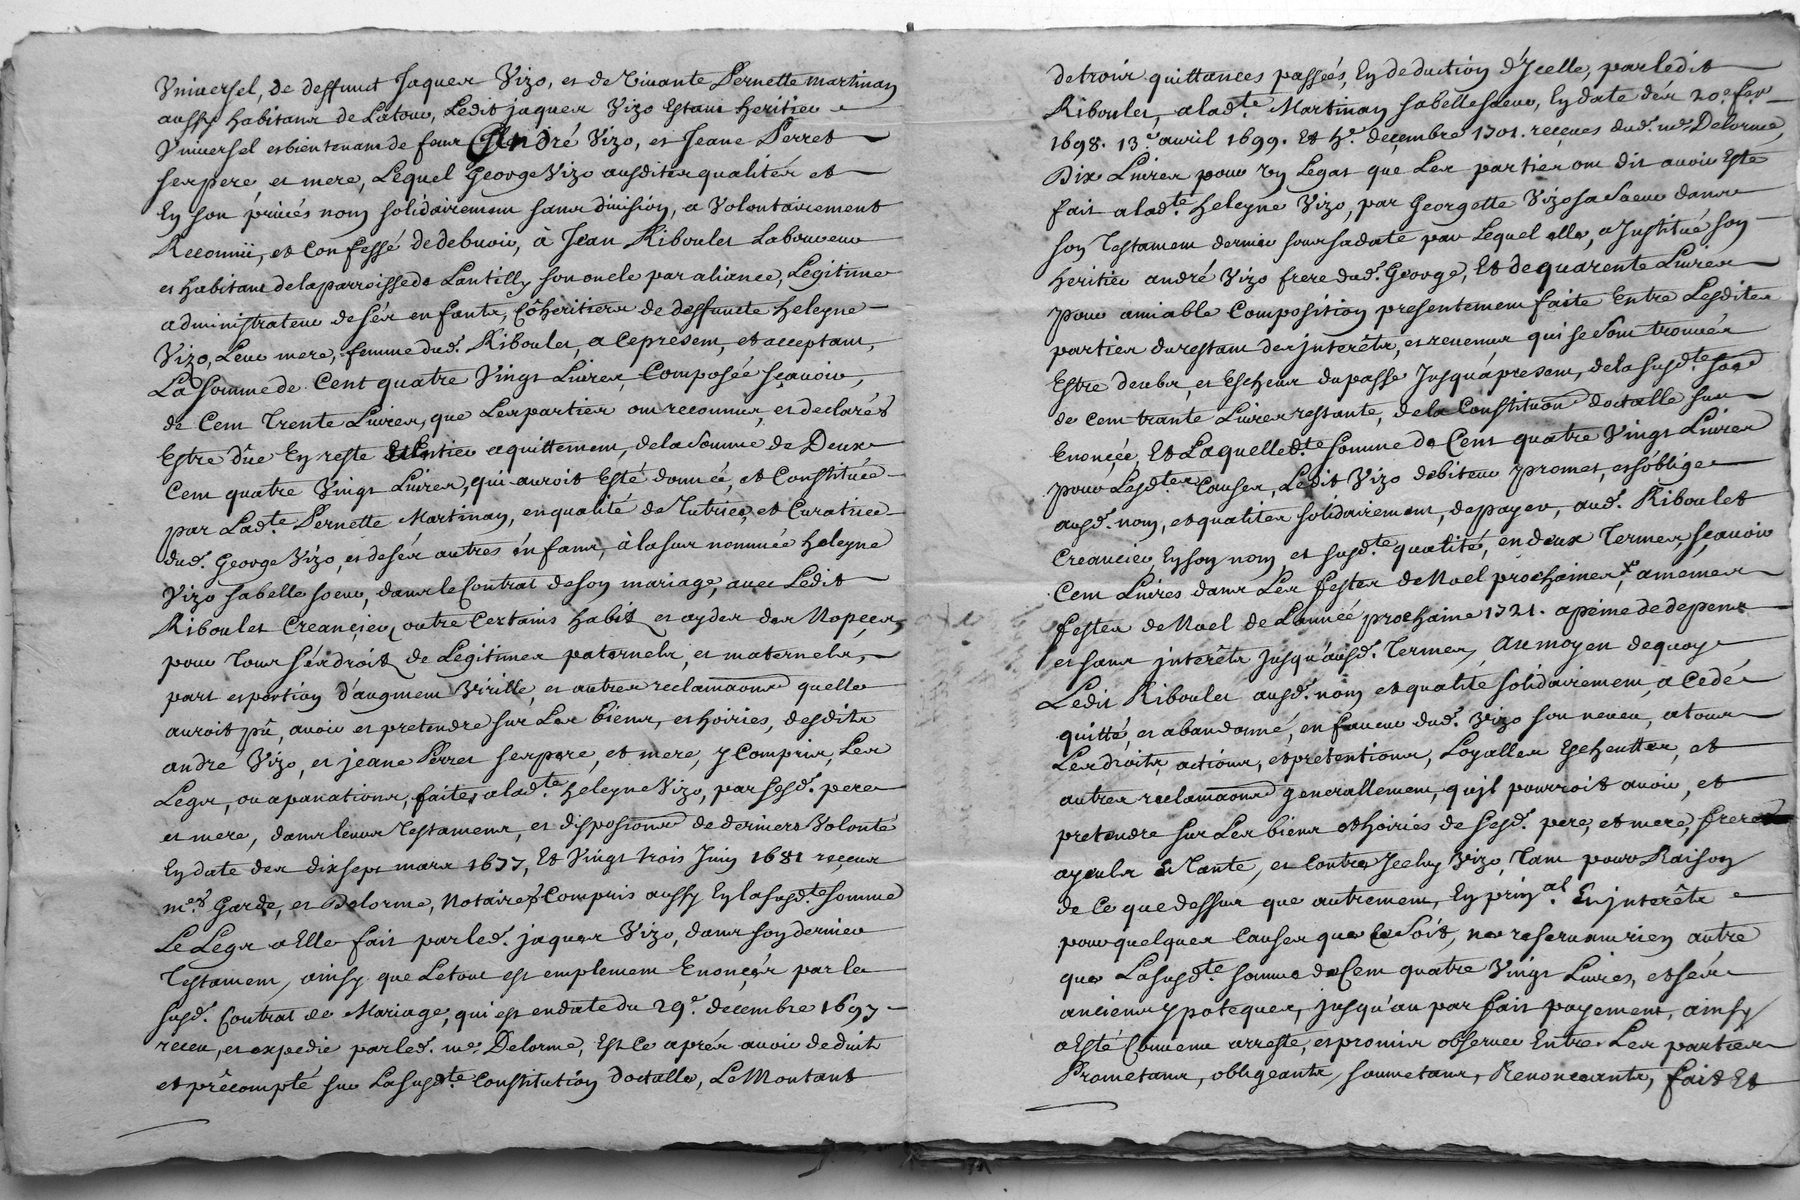 Vniuersel, de deffunct Jaques Vizo, et de viuante Pernette Martinan
aussy habitans de Latour, Ledit jaques Vizo Estant heritier
Vniuersel et bientenant de feux André Vizo, et Jeane Perret
ses pere, et mere, Lequel George Vizo ausdites qualités et
En son privés nom solidairement sans diuision, a Volontairement
Reconnu, et Confessé de debuoir, à Jean Riboulet Laboureur
et habitant de la parroisse de Lantilly son oncle par aliance, Legitime
administrateur de sés enfants, Côheritiers de deffuncte heleyne
Vizo, Leur mere, femme dud. Riboulet, a ce présent, et acceptant,
La Somme de Cent quatre Vingt Liures, Composée sçauoir,
de Cent Trente Liures, que Les parties ont reconnus, et declarés
Estre dûe En reste et Entier aquittement, de la Somme de Deux
Cent quatre Vingt Liures, qui auroit Esté donnée, et Constituée
par Lad.te Pernette Martinan, en qualité de Tutrice, et Curatrice
dud. George Vizo, et de sés autres énfans, à la sus nommée heleyne
Vizo sa belle soeur, dans le Contrat de son mariage, auec Ledit
Riboulet Creancier, outre Certains habits et aydes des Nopces,
pour Tous sés droits de Legitimes paternels, et maternels,
part et portion d'augment Virille, et autres reclamaons quelle
auroit pû, auoir et pretendre sur Les biens, et hoiries, desdits
andré Vizo, et jeane Perret ses pere, et mere, y Compris, Les
Legs, ou apanations, faites a lad.te heleyne Vizo, par sesd. pere
et mere, dans leurs Testamens, et disposions de derniere Volonté
En date des dix sept mars 1677, Et Vingt trois Juin 1681 reçeus
m.es Garde, et Delorme, Notaires Compris aussy En la susd.te somme
Le Legs a Elle fait par led. jaques Vizo, dans son dernier
Testament, ainsy que Le tout est emplement Enonçés par le
susd. Contrat de Mariage, qui est en date du 29.e decembre 1697
receu, et expedie par led. me. Delorme, Est Ce aprés auoir deduit
et précompté sur La susd.te Constitution doctalle, Le Montant
de trois quittances passées, En deduction d'Jcelle, par ledit
Riboulet, a lad.te Martinan sa belle soeur, En date dés 20.e feu
1698. 13.e auril 1699. Et 4.e deçembre 1701. reçeues dud. me. Delorme,
Dix Liures pour Vn Legat que Les parties ont dit auoir Este
fait a lad.te heleyne Vizo, par Georgette Vizo sa Soeur dans
son Testament dernier sous sa date par Lequel elle, a Institué son
heritier andré Vizo frere dud. George, Et de quarente Liures
pour amiable Composition presentement faite Entre Lesdites
parties du restant des jnterêts, et reuenus qui se sont trouués
Estre deubs, et Escheus du passe Jusqu'à present, de la susd.te som
de Cent trante Liures restante, de la Constituon doctalle sus
Enonçée, Et Laquelle d.te Somme de Cent quatre Vingt Liures
pour Lesd.tes Causes, Ledit Vizo debiteur promet, et s'oblige
ausd. nom, et qualites solidairement, de payer, aud. Riboulet
Creancier, En son nom, et susd.te qualité, en deux Termes, sçauoir
Cent Liures dans Les festes de Noel prochaines, x a mesmes
festes de Noel de L'année prochaine 1721. a peine de depens
et sans jnterêts Jusqu'ausd. Termes, Au moyen de quoy
Ledit Riboulet ausd. nom et qualité solidairement, a Cedé
quitté, et abandonné, en faueur dud. Vizo son neueu, a tous
Les droits, actions, et prétentions, Loyalles Escheuttes, et
autres reclamaons generallement, qu'jl pourroit auoir, et
pretendre sur Les biens et hoiries de sesd. pere, et mere, freres
ayeuls & Tante, et Contre Jceluy Vizo, Tant pour Raison
de Ce que dessus que autrement, En prin.al Et jnterêts
pour quelques Causes que Ce Soit, ne reseruant rien autre
que La susd.te somme de Cent quatre Vingt Liures, et sés
anciens ypoteques, jusqu'au parfait payement, ainsy
a Esté Conuenu arresté, et promis obseruer Entre Les parties
Prometans, obligeants, soumetans, Renonceants, fait Et